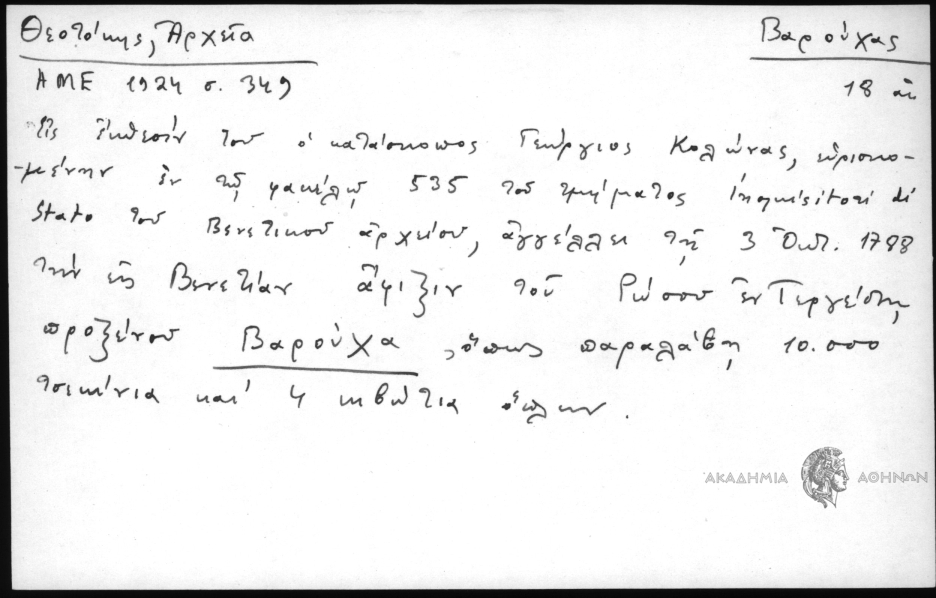 Θεοτόκης, Ἀρχεῖα
Βαρούχας
ΑΜΕ 1924 σ. 349
18 αι
Εἰς ἔκθεσίν του ὁ κατάσκοπος Γεώργιος Κολώνας, εὑρισκο-
-μένην ἐν τῷ φακέλῳ 535 τοῦ τμήματος Inquisitori di
Stato τοῦ Βενετικοῦ ἀρχείου, ἀγγέλλει τῇ 3 Ὀκτ. 1788
τὴν εἰς Βενετίαν ἄφιξιν τοῦ Ρώσου ἐν Τεργέστῃ
προξένου Βαρούχα, ὅπως παραλάβῃ 10.000
τσεκίνια καὶ 4 κιβώτια ὅπλων.
ΑΚΑΔΗΜΙΑ ΑΘΗΝΩΝ